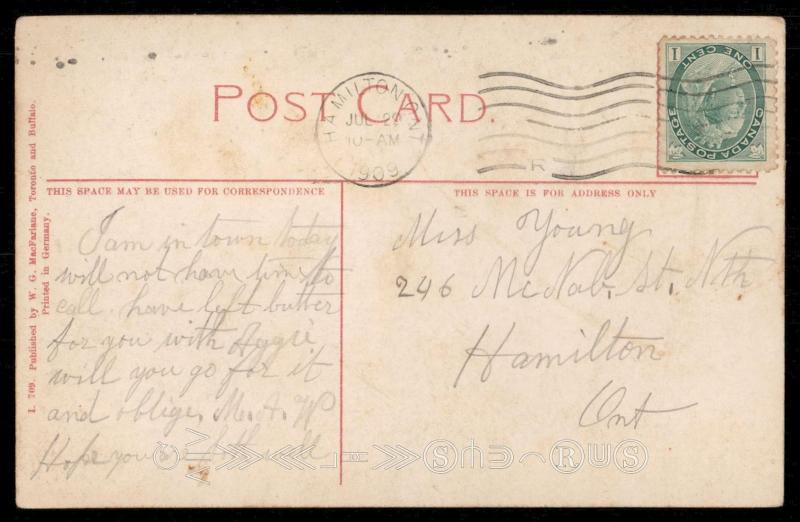 POST CARD.
HAMILTON, ONT
JUL 29
10-AM
1909
R
1 1
ONE CENT
CANADA POSTAGE
THIS SPACE MAY BE USED FOR CORRESPONDENCE
THIS SPACE IS FOR ADDRESS ONLY
I. 709. Published by W. G. MacFarlane, Toronto and Buffalo.
Printed in Germany.
I am in town today
will not have time to
call. have left butter
for you with Aggie
will you go for it
and oblige, M. A. W
Hope you are both well
Miss Young
246 McNab. St. Nth
Hamilton
Ont